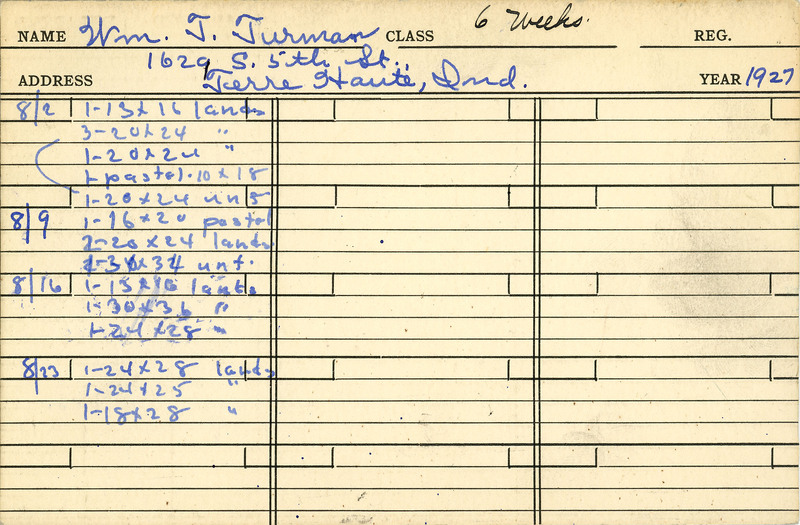 NAME Wm. T. Turman CLASS 6 Weeks. REG.
1629 S. 5th St.,
ADDRESS Terre Haute, Ind. YEAR 1927
8/2 1-13x16 lands
3-20x24 "
1-20x24 "
1-pastel. 10x18
1-20x24 unf
8/9 1-16x20 pastel
2-20x24 lands
unf.
8/16 lands
1-30x36 "
1-24x28 "
8/23 1-24x28 lands
1-24x25 "
1-18x28 "